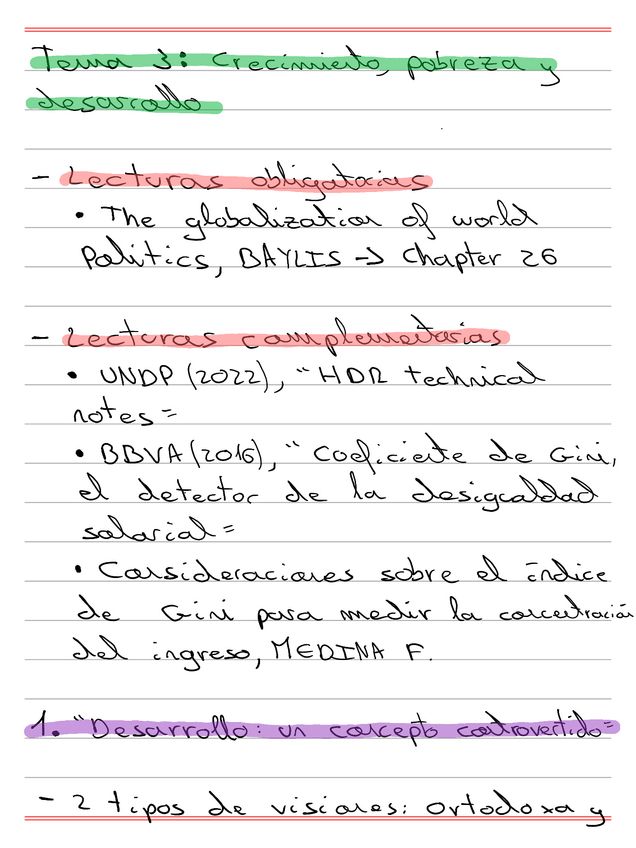 Tema 3: Crecimiento, pobreza y
desarrollo
- Lecturas obligatorias
• The globalization of world
Politics, BAYLIS -> Chapter 26
- Lecturas complementarias
• UNDP (2022), "HDR technical
notes"
• BBVA (2016), "Coeficiente de Gini,
el detector de la desigualdad
salarial"
• Consideraciones sobre el índice
de Gini para medir la concentración
del ingreso, MEDINA F.
1. "Desarrollo: un concepto controvertido"
- 2 tipos de visiones: ortodoxa y